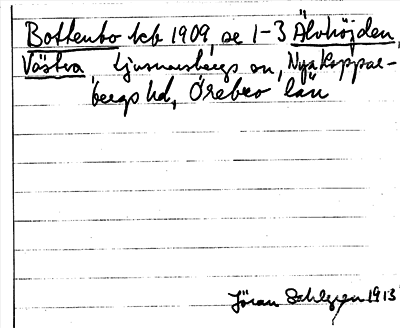 Bottenbo kcb 1909, se 1-3 Älvhöjden,
Västra, Ljusnarsbergs sn, Nya Koppar-
bergs hd, Örebro län
Jöran Sahlgren 1913